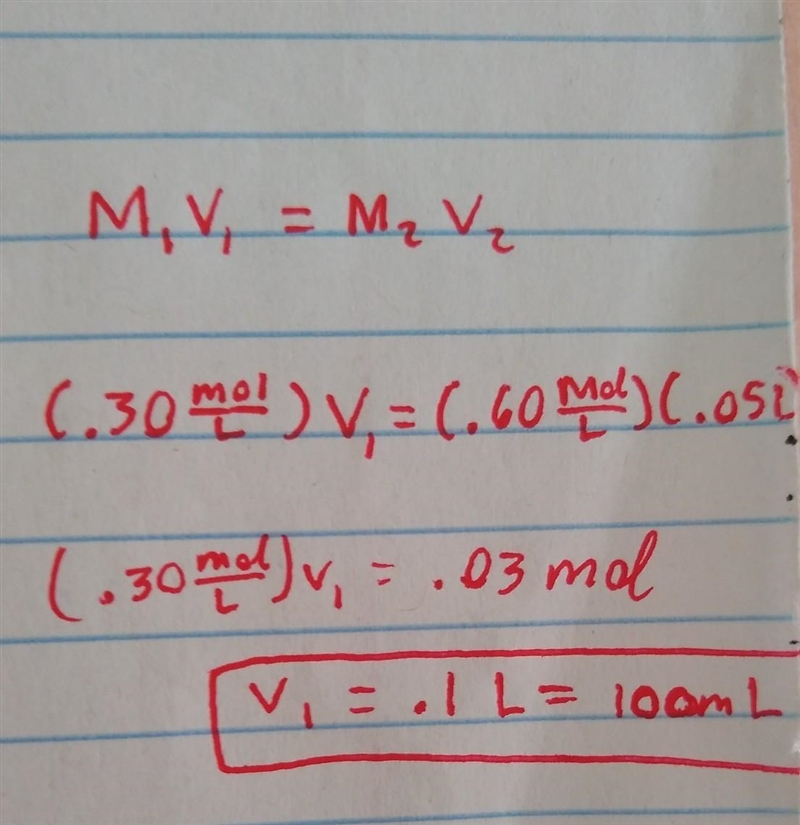 M₁V₁ = M₂V₂
(.30 mol/L) V₁ = (.60 Mol/L)(.05L
(.30 mol/L) V₁ = .03 mol
V₁ = .1 L = 100mL